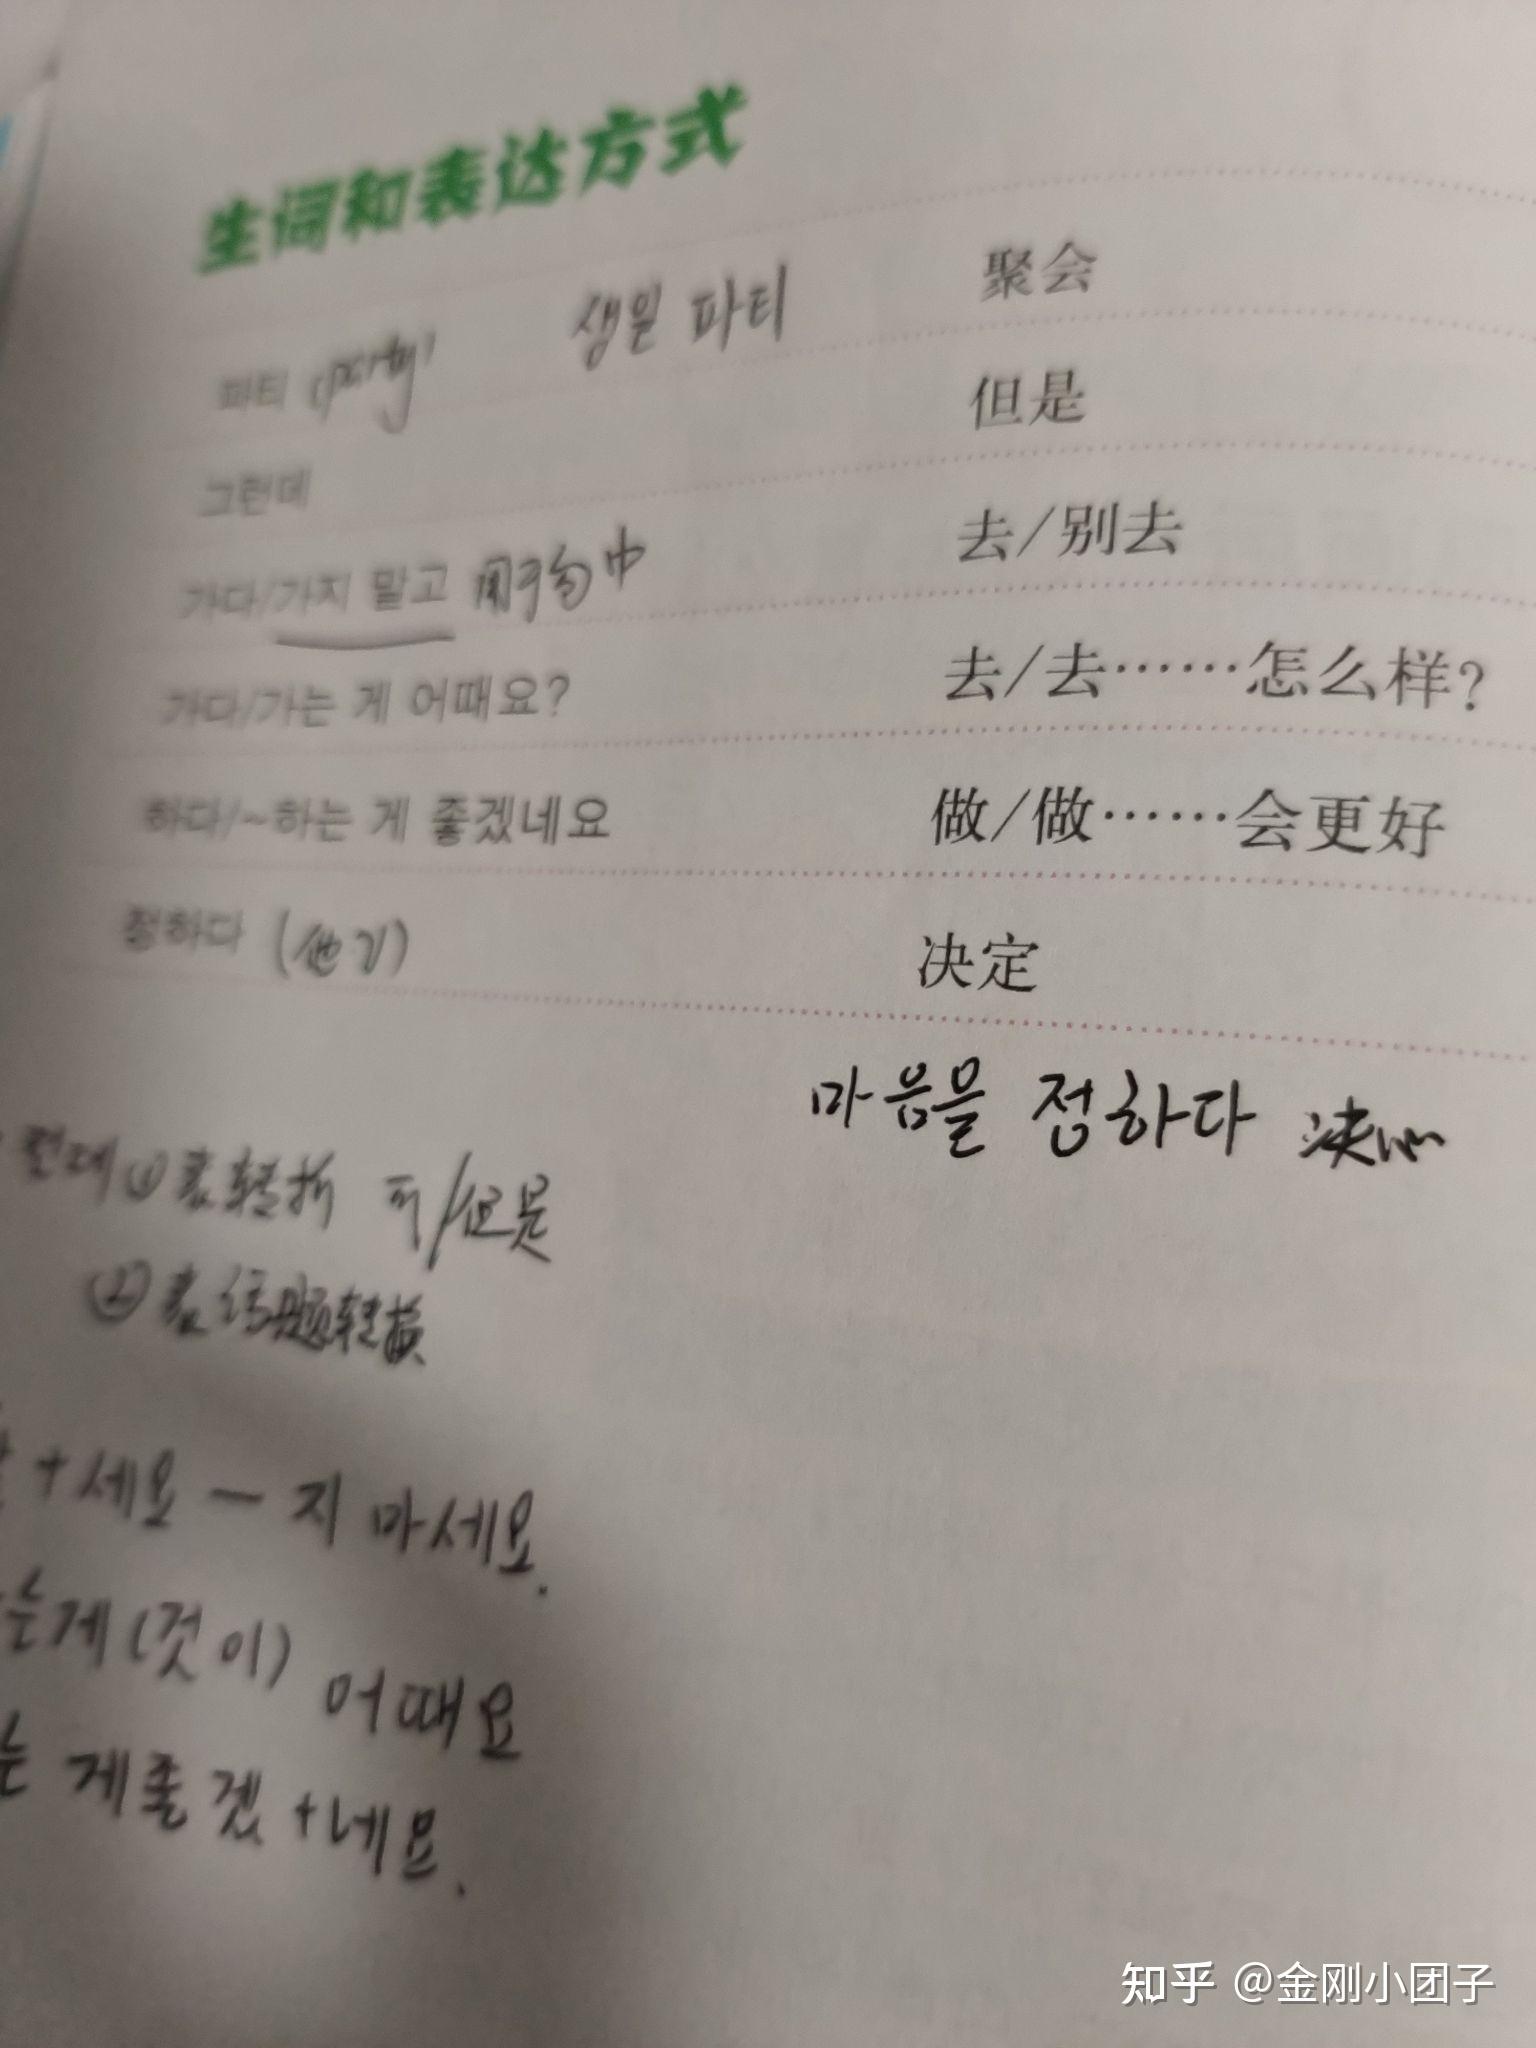 生词和表达方式
파티 (party) 생일 파티 聚会
그런데 但是
가다/가지 말고 用于句中 去/别去
가다/가는 게 어때요? 去/去……怎么样?
하다/~하는 게 좋겠네요 做/做……会更好
정하다 (他V) 决定
마음을 정하다 决心
런데 ① 表转折 可/但是
② 表话题转换
+세요 — 지 마세요.
는게 (것이) 어때요
는 게 좋겠+네요.
知乎 @金刚小团子